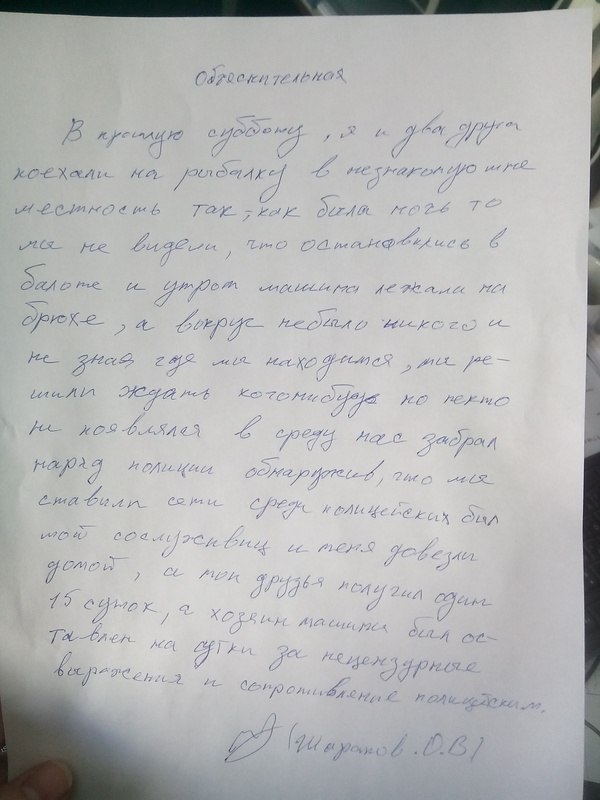 Объяснительная
В прошлую субботу, я и два друга
поехали на рыбалку в незнакомую мне
местность так, как была ночь то
мы не видели, что остановились в
балоте и утром машина лежала на
брюхе, а вокруг небыло никого и
не зная где мы находимся, мы ре-
шили ждать когонибудь но некто
не появлялся в среду нас забрал
наряд полиции обнаружив, что мы
ставили сети среди полицейских был
мой сослуживиц и меня довезли
домой, а мои друзья получил один
15 суток, а хозяин машины был ос-
тавлен на сутки за нецензурные
выражения и сопротивление полицейским.
(Шарапов.О.В)